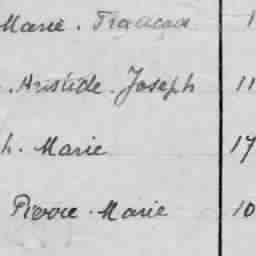 Marie . Francoa 1
. Aristide . Joseph 11
h . Marie 17
Pierre . Marie 10